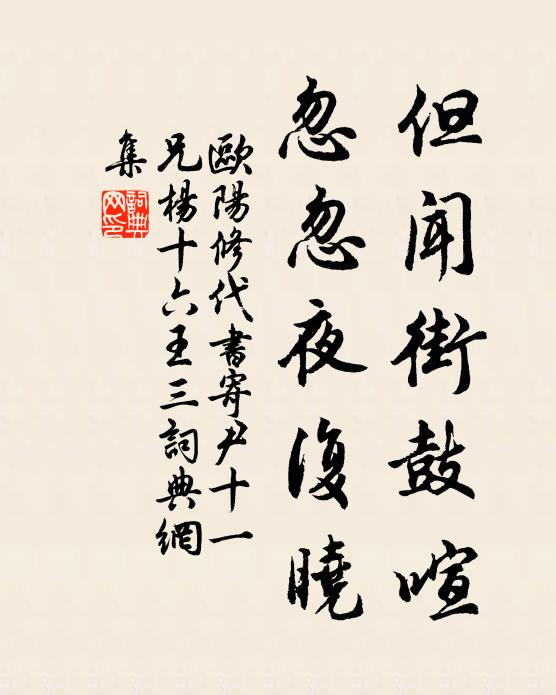 但聞街鼓喧
忽忽夜復曉
歐陽修代書寄尹十一
兄楊十六王三詞典網
集
詞典
网印